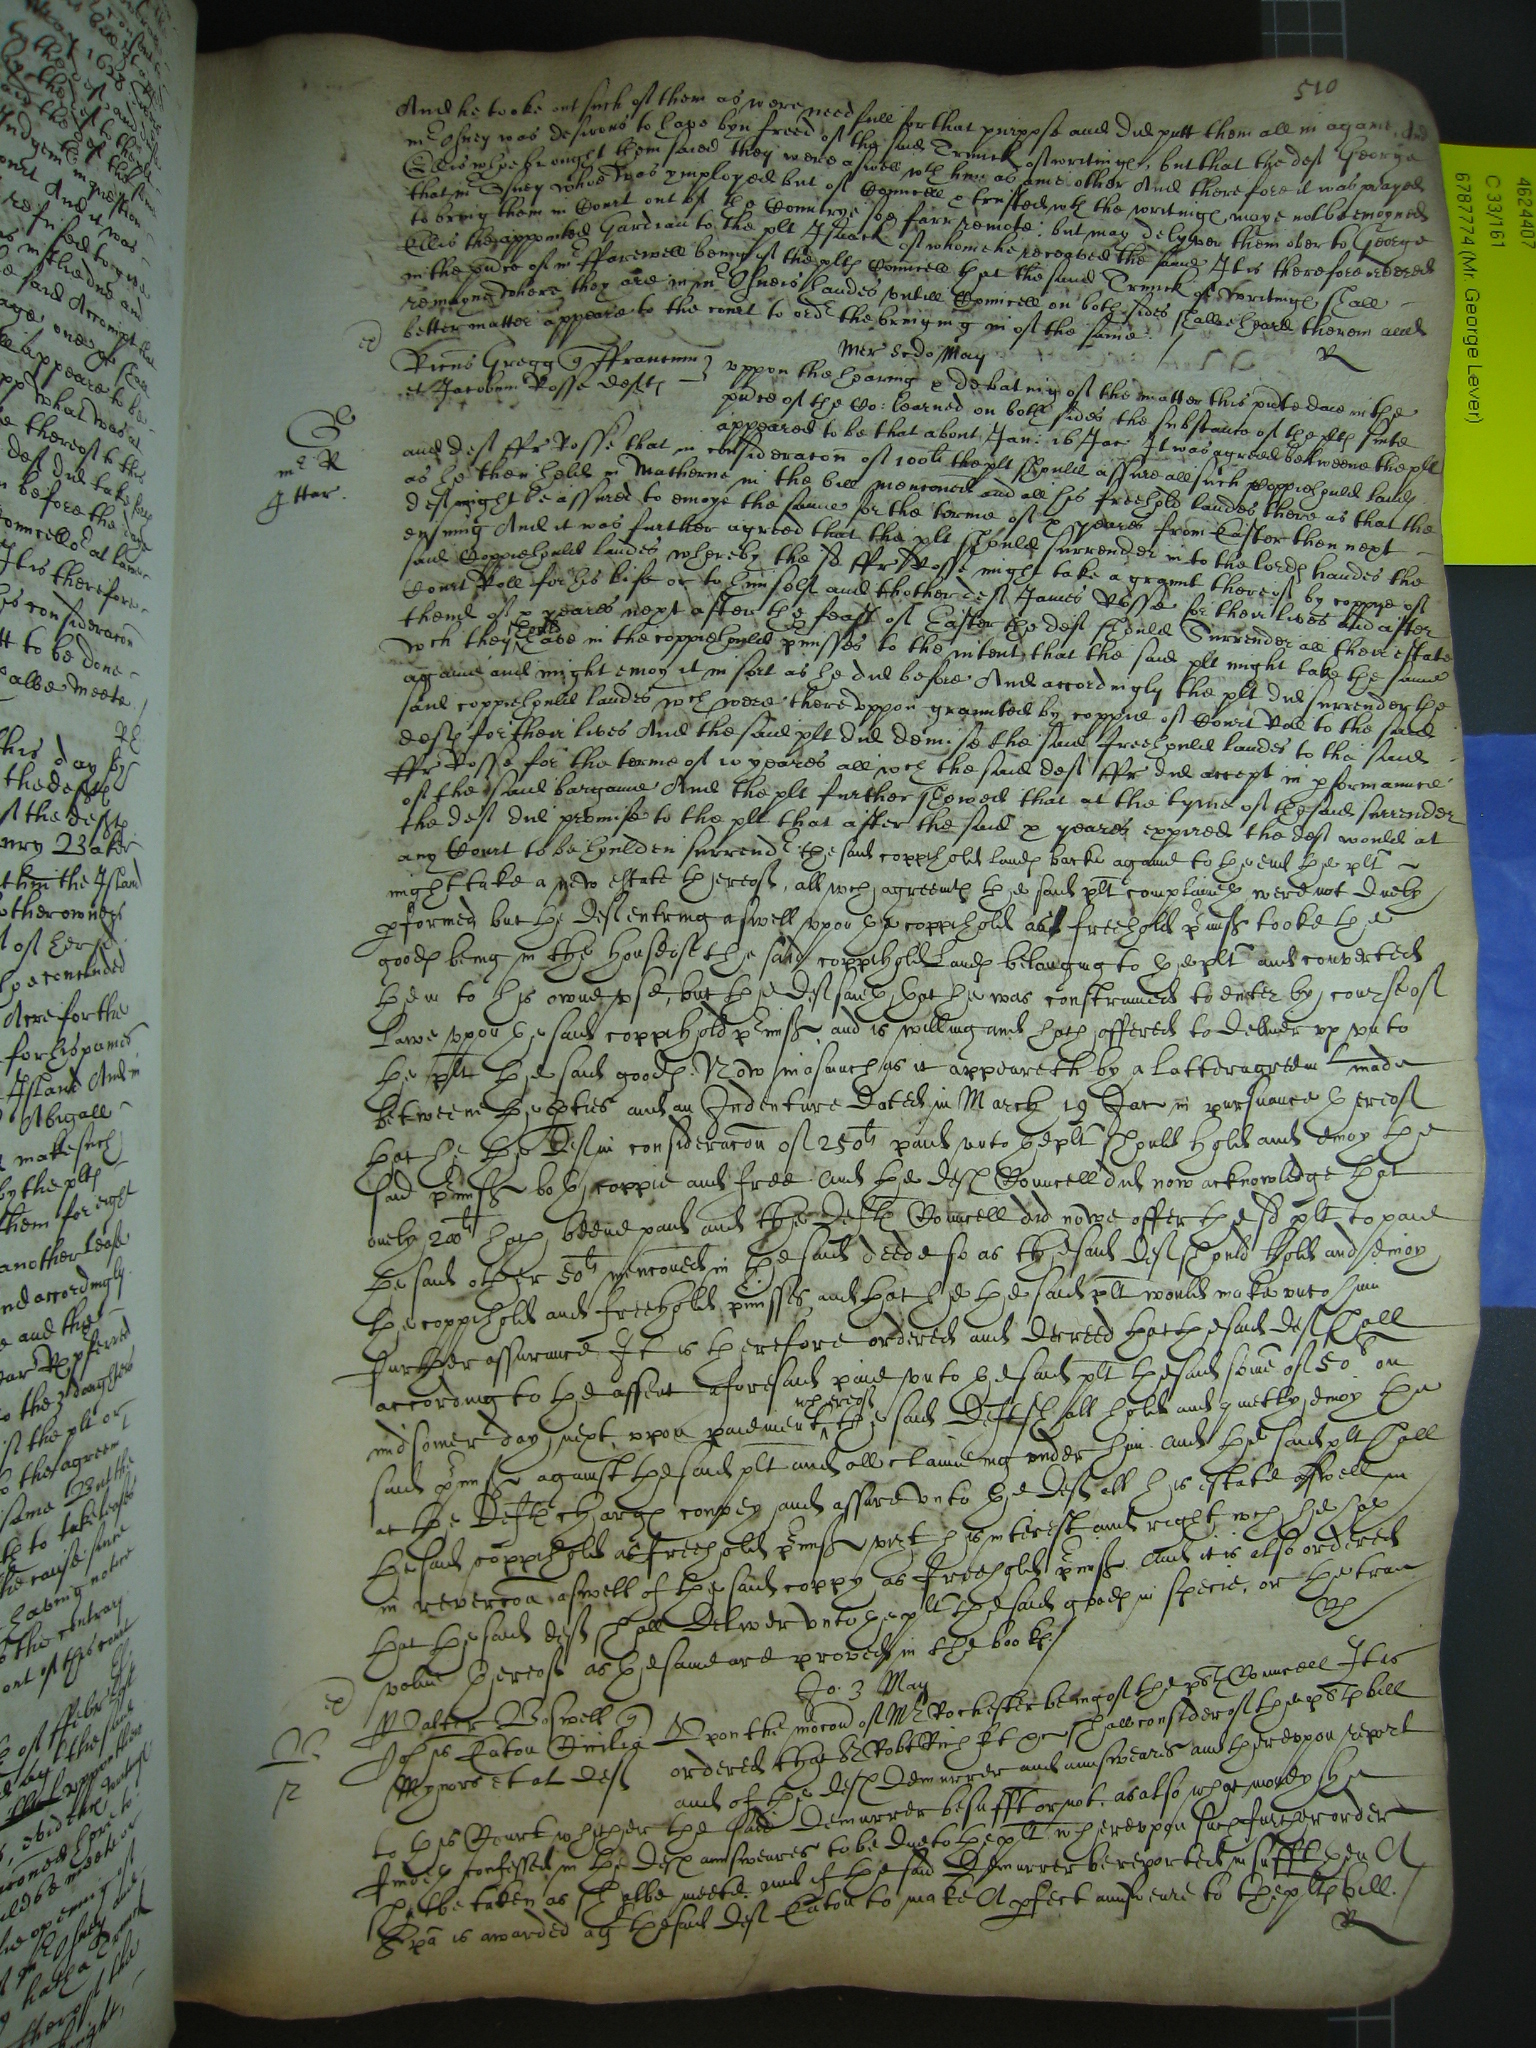 510
And he tooke out such of them as were needfull for that purpose and did putt them all in againe, And
mr Osney was desirous to have byn freed of the said Trunck of writinge, but that the deft George
Ellis whoe brought them saied they were aswell wth him as anie other And therefore it was prayed
that mr Osney whoe was ymployed but of Councell & trusted wth the writinge maye not be enioyned
to bring them in Court out of the Countrye soe farr remote, but may delyver them over to George
Ellis the appointed Gardian to the plt Isaack of whome he receaved the same It is therefore ordered
in the pnce of mr ffarewell being of the plts Councell that the said Trunck of writinge shall
remayne where they are in mr Osneis handes untill Councell on both sides shalbe heard therein and
better matter appeare to the court to ordr the bringing in of the same
R
Mer secdo May
Ricus Gregg q ffranciscum
et Jacobum Rosse defts
uppon the hearing & debating of the matter this pnte daie in the
pnce of the Co: learned on both sides the substance of the plts suite
appeared to be that about Jan: 16 Jac It was agreed betweene the plt
and deft ffr Rosse that in consideracon of 100li the plt should assure all such coppiehould lands
as he then held in Matherne in the bill menconed and all his freehold landes there as that the
deft might be assured to enioye the same for the terme of x yeares from Easter then next
ensuing And it was further agreed that the plt should surrender into the lords handes the
said Coppiehould landes whereby the sd ffr Rosse might take a graunt thereof by coppye of
Court Roll for his life or to himself and thother deft James Rosse for their lives And after
thend of x yeares next after the feast of Easter the deft should Surrender all their estate
wch they should have in the coppiehould pmisses to the intent that the said plt might take the same
againe and might enioy it in sort as he did before And accordingly the plt did surrender the
said coppiehould landes wch were thereuppon graunted by coppie of Court Roll to the said
defts for their lives And the said plt did demise the said freehould landes to the said
ffr Rosse for the terme of 10 yeares all wch the said deft ffr did accept in pformance
of the said bargaine And the plt further shewed that at the tyme of the said surrender
the deft did promise to the plt that after the said x yeares expired the deft would at
any Court to be houlden surrendr the said coppiehold lands backe againe to thend the plt
might take a new estate thereof, all wch agreemts the said plt complaineth were not duely
pformed but the deft entring aswell upon the coppihold as freehold pmiss tooke the
goods being in the house of the said coppihold lands belonging to the plt and converted
them to his owne use, but the deft saith that he was constrained to enter by course of
Lawe upon the said coppihold pmiss, and is willing and hath offered to deliver up unto
the plt the said goods. Now inasmuch as it appeareth by a latter agreemt made
betweene the pties and an Indenture dated in March 19 Jac in pursuance thereof
that he the deft in consideracon of 250li paid unto the plt should hold and enioy the
said pmiss both coppie and free And the defts Councell did now acknowledge that
onely 200li hath beene paid and the defts Councell did nowe offer the sd plt to paie
the said other 50li menconed in the said deede so as the said deft should hold and enioy
the coppihold and freehold pmisses, and that he the said plt would make unto him
further assurance It is therefore ordered and decreed that the said deft shall
according to the assent aforesaid paie unto the said plt the said some of 50li on
midsomer day next, upon paiement whereof the said Deft shall hold and quietly enioy the
said pmiss against the said plt and all claiming under him. And the said plt shall
at the Defts charge convey and assure unto the deft all his estate aswell in
the said coppihold as freehold pmiss, vizt his interest and right wch he hath
in revercon aswell of the said coppy as freehold pmiss. And it is also ordered
that the said deft shall deliver unto the plt the said goods in specie, or the true
value thereof as the same are proved in the bookes
mr R
Attor.
Jo: 3 May
Walter Boswell q
Johis Eaton
et al deft
Upon the mocon of Mr Rochester being of the plts Councell It is
ordered that Sr Robt Rich Kt &c shall consider of the plts bill
and of the defts Demurrer and answeares and thereupon report
to this Court whither the said Demurrer be sufft or not, as also what money he
findeth confessed in the defts answeares to be due to the plt whereupon such further order
shalbe taken as shalbe meete. And if the said Demurrer be reported insufft then A
Spa is awarded agt the said deft Eaton to make A pfect answeare to the plts bill.
R
4624407
C 33/161
6787774(Mr. George Lever)